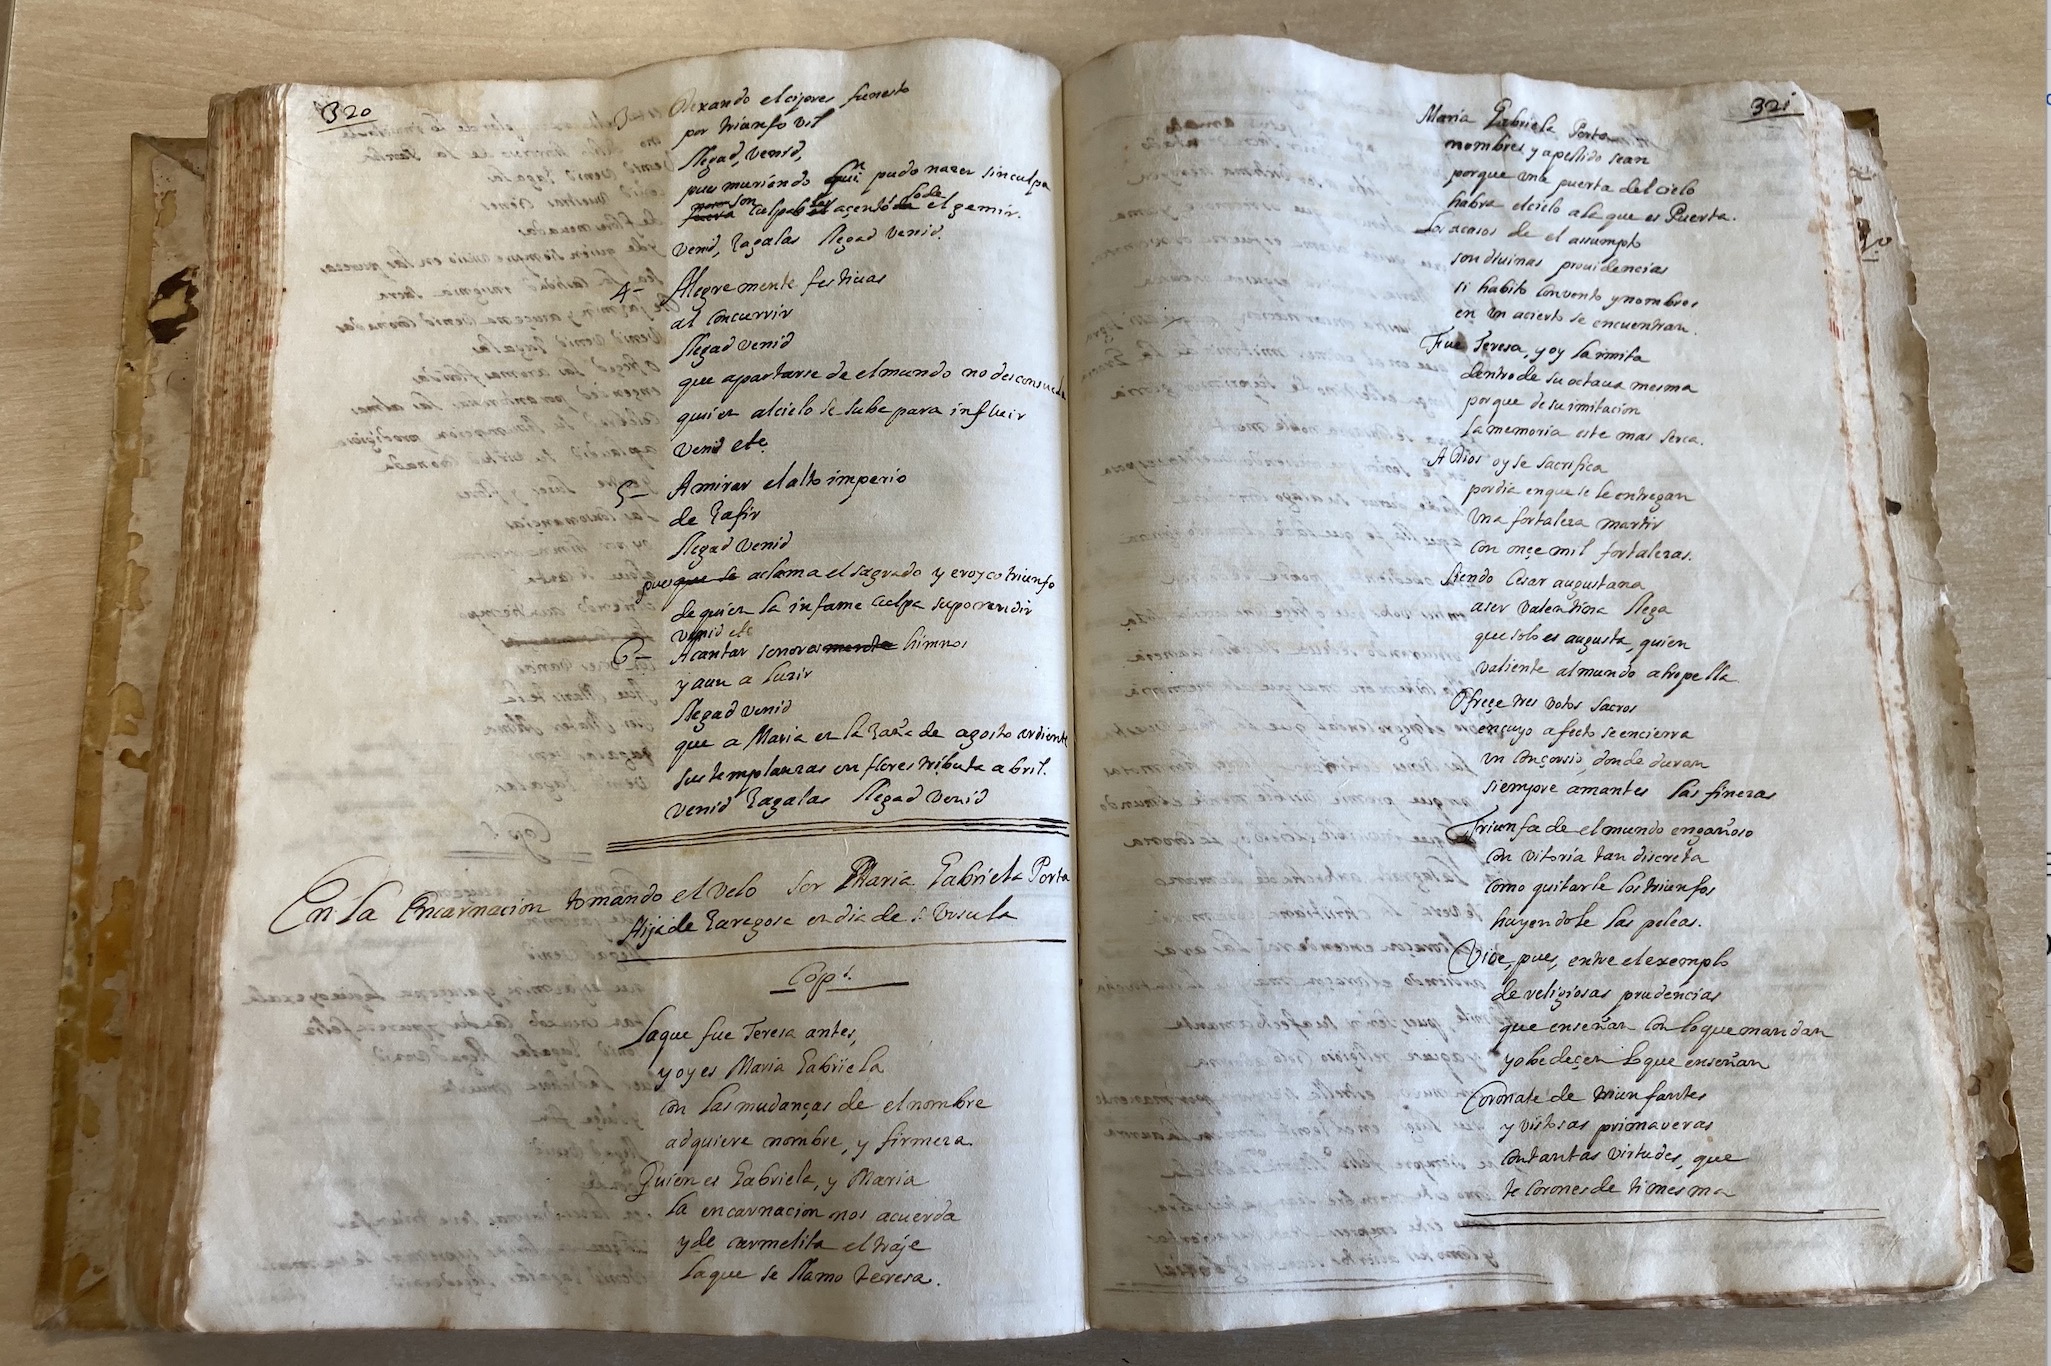 320
3- Dexando el cipres funesto
por triunfo vil
llegad, venid,
pues muriendo quien pudo nazer sin culpa
son culpables acentos los de el gemir.
venid, zagalas llegad venid.
4- Alegremente festivas
al concurrir
llegad venid
que apartarse de el mundo no desconsuela
quien al cielo se sube para influir
venid etc.
5- A mirar el alto imperio
de zafir
llegad venid
pues que se aclama el sagrado y eroyco triunfo
de quien la infame culpa supo rendir
venid etc
6- A cantar sonoros mente himnos
y aun a luzir
llegad venid
que a Maria en la zaña de agosto ardiente
sus templanzas en flores tributa abril.
venid zagalas llegad venid
En la Encarnacion tomando el velo Sor Maria Gabriela Porta
Hija de Zaragosa en dia de S. Ursula
Cop.s
La que fue Teresa antes,
y oy es Maria Gabriela
con las mudanças de el nombre
adquiere nombre, y firmeza
Quien es Gabriela, y Maria
la encarnacion nos acuerda
y de carmelita el traje
la que se llamo teresa.
321
Maria Gabriela Porta
nombres, y apellido sean
porque una puerta del cielo
habra el cielo a la que es Puerta.
Los acasos de el assumpto
son divinas providencias
si habito convento y nombres
en un acierto se encuentran.
Fue Teresa, y oy la imita
dentro de su octava mesma
porque de su imitacion
la memoria este mas serca.
A Dios oy se sacrifica
por dia en que se le entregan
una fortaleza martir
con onçe mil fortalezas.
Siendo Cesar augustana
a ser valentina llega
que solo es augusta, quien
valiente al mundo atropella
Ofreçe tres votos sacros
en cuyo afecto se encierra
un conçorsio, donde duran
siempre amantes las finezas
Triunfa de el mundo engañoso
con vitoria tan discreta
como quitarle los triunfos
huyendole las peleas.
Vive, pues, entre el exemplo
de religiosas prudencias
que enseñan con lo que mandan
y obedeçen lo que enseñan
Coronate de triunfantes
y vistosas primaveras
con tantas virtudes, que
te corones de ti mesma